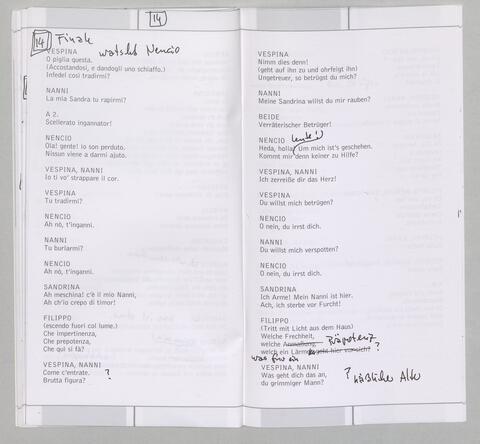 14
14 Finale
VESPINA watscht Nencio
O piglia questa.
(Accostandosi, e dandogli uno schiaffo.)
Infedel così tradirmi?
NANNI
La mia Sandra tu rapirmi?
A 2.
Scellerato ingannator!
NENCIO
Ola! gente! io son perduto.
Nissun viene a darmi ajuto.
VESPINA, NANNI
Io ti vo' strappare il cor.
VESPINA
Tu tradirmi?
NENCIO
Ah nò, t'inganni.
NANNI
Tu burlarmi?
NENCIO
Ah nò, t'inganni.
SANDRINA
Ah meschina! c'è il mio Nanni,
Ah ch'io crepo di timor!
FILIPPO
(escendo fuori col lume.)
Che impertinenza,
Che prepotenza,
Che qui si fà?
VESPINA, NANNI
Come c'entrate. ?
Brutta figura?
VESPINA
Nimm dies denn!
(geht auf ihn zu und ohrfeigt ihn)
Ungetreuer, so betrügst du mich?
NANNI
Meine Sandrina willst du mir rauben?
BEIDE
Verräterischer Betrüger!
NENCIO
Heda, holla, Um mich ist's geschehen.
Kommt mir denn keiner zu Hilfe?
VESPINA, NANNI
Ich zerreiße dir das Herz!
VESPINA
Du willst mich betrügen?
NENCIO
O nein, du irrst dich.
NANNI
Du willst mich verspotten?
NENCIO
O nein, du irrst dich.
SANDRINA
Ich Arme! Mein Nanni ist hier.
Ach, ich sterbe vor Furcht!
FILIPPO
(Tritt mit Licht aus dem Haus)
Welche Frechheit,
welche Anmaßung, Präpotenz
welch ein Lärm geht hier vor sich? ?
was für ein
VESPINA, NANNI
Was geht dich das an, ? häßlicher Alter
du grimmiger Mann?